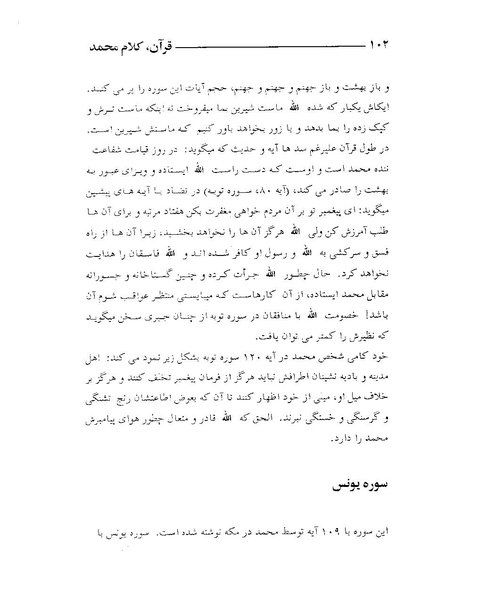 ۱۰۲ قرآن، کلام محمد
و باز بهشت و باز جهنم و جهنم و جهنم، حجم آیات این سوره را بر می کنند.
ایکاش یکبار که شده الله ماست شیرین بما میفروخت نه اینکه ماست ترش و
کپک زده را بما بدهد و با زور بخواهد باور کنیم که ماستش شیرین است.
در طول قرآن علیرغم صد ها آیه و حدیث که میگوید: در روز قیامت شفاعت
ننده محمد است و اوست که دست راست الله ایستاده و ویزای عبور به
بهشت را صادر می کند، (آیه ۸۰، سوره توبه) در تضاد با آیه های پیشین
میگوید: ای پیغمبر تو بر آن مردم خواهی مغفرت بکن هفتاد مرتبه و برای آن ها
طلب آمرزش کن ولی الله هرگز آن ها را نخواهد بخشید، زیرا آن ها از راه
فسق و سرکشی به الله و رسول او کافر شده اند و الله فاسقان را هدایت
نخواهد کرد. حال چطور الله جرأت کرده و چنین گستاخانه و جسورانه
مقابل محمد ایستاده، از آن کارهاست که میبایستی منتظر عواقب شوم آن
باشد! خصومت الله با منافقان در سوره توبه از چنان جبری سخن میگوید
که نظیرش را کمتر می توان یافت.
خود کامی شخص محمد در آیه ۱۲۰ سوره توبه بشکل زیر نمود می کند: اهل
مدینه و بادیه نشینان اطرافش نباید هرگز از فرمان پیغمبر تخلف کنند و هرگز بر
خلاف میل او، میلی از خود اظهار کنند تا آن که بعوض اطاعتشان رنج تشنگی
و گرسنگی و خستگی نبرند. الحق که الله قادر و متعال چطور هوای پیامبرش
محمد را دارد.
سوره یونس
این سوره با ۱۰۹ آیه توسط محمد در مکه نوشته شده است. سوره یونس با